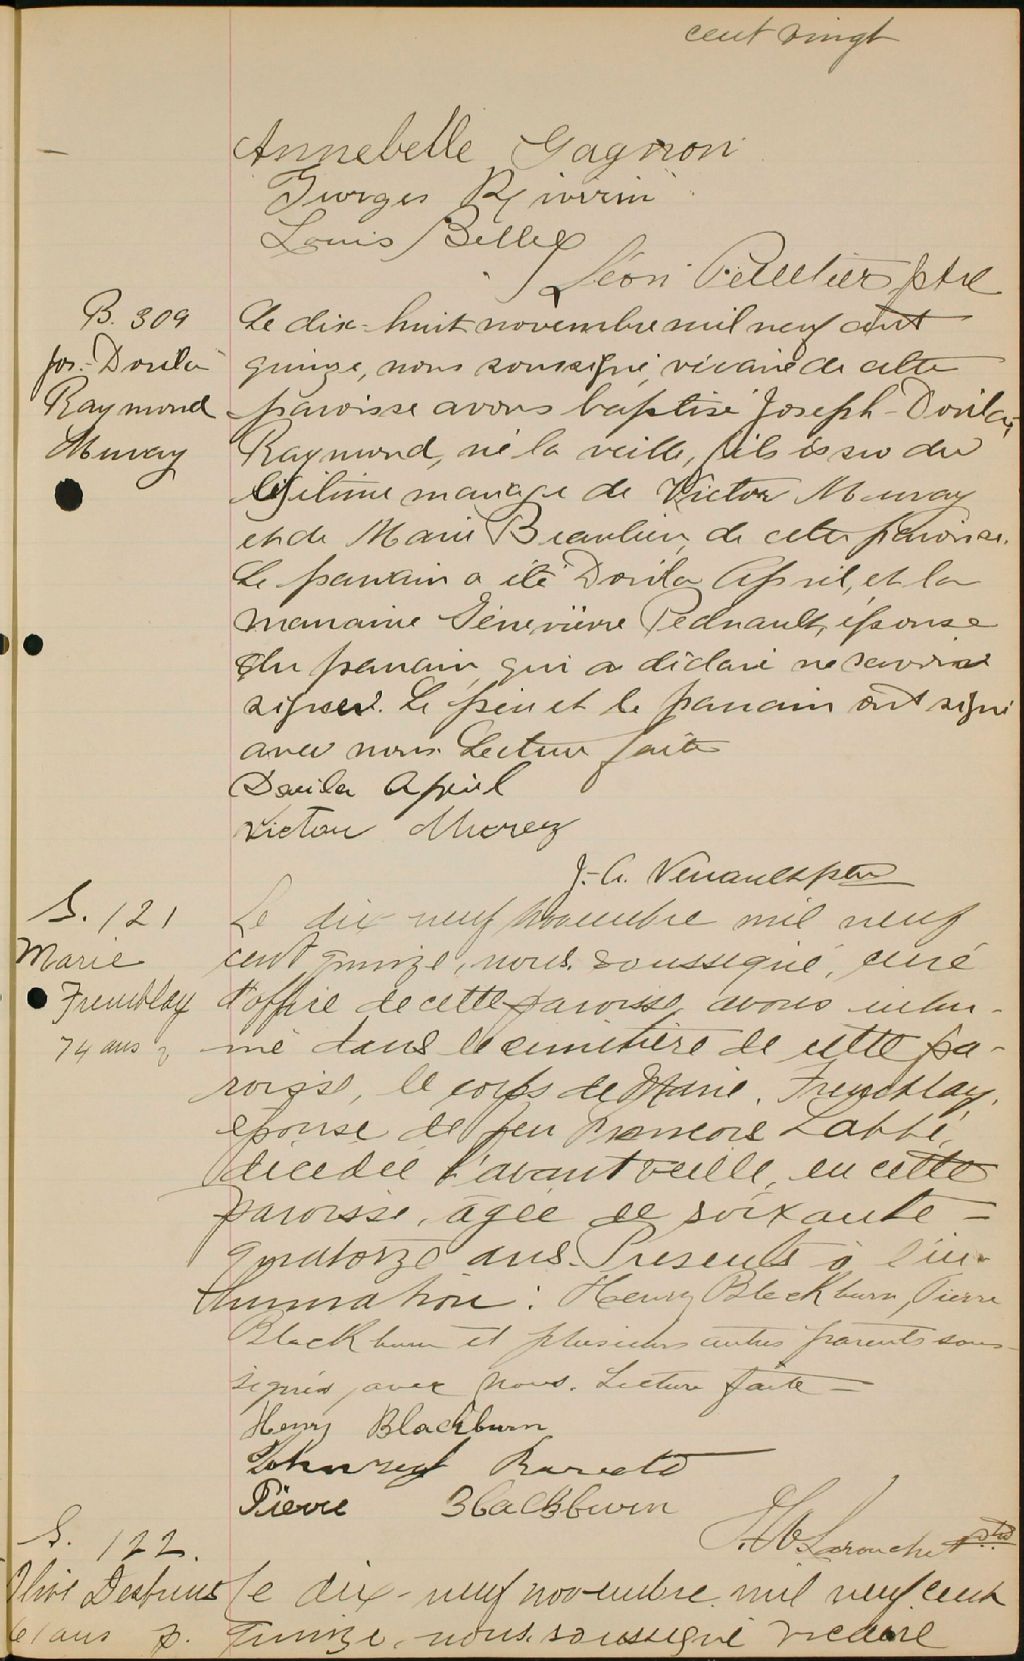 cent vingt
Annebelle Gagnon
Georges Riverin
Louis Belley
Léon Pelletier ptre
B. 309
Jos.-Dorila
Raymond
Murray
Le dix-huit novembre mil neuf cent
quinze, nous soussigné, vicaire de cette
paroisse avons baptisé Joseph-Dorila,
Raymond, né la veille, fils issu du
légitime mariage de Victor Murray
et de Marie Beaulieu, de cette paroisse.
Le parrain a été Dorila April, et la
marraine Geneviève Pednault, épouse
du parrain, qui a déclaré ne savoir
signer. Le père et le parrain ont signé
avec nous. Lecture faite
Dorila April
Victor Murey
J.-A. Verrault ptre
S. 121
Marie
Tremblay
74 ans
Le dix-neuf novembre mil neuf
cent quinze, nous, soussigné, curé
d'office de cette paroisse, avons inhu-
mé dans le cimetière de cette pa-
roisse, le corps de Marie Tremblay,
épouse de feu François Labbé,
décédée l'avant veille, en cette
paroisse, âgée de soixante-
quatorze ans. Présents à l'in-
humation: Henry Blackburn, Pierre
Blackburn et plusieurs autres parents sous-
signés avec nous. Lecture faite -
Henry Blackburn
Pierre Blackburn
Larouche ptre
S. 122.
61 ans
Le dix-neuf novembre mil neuf cent
quinze, nous, soussigné vicaire